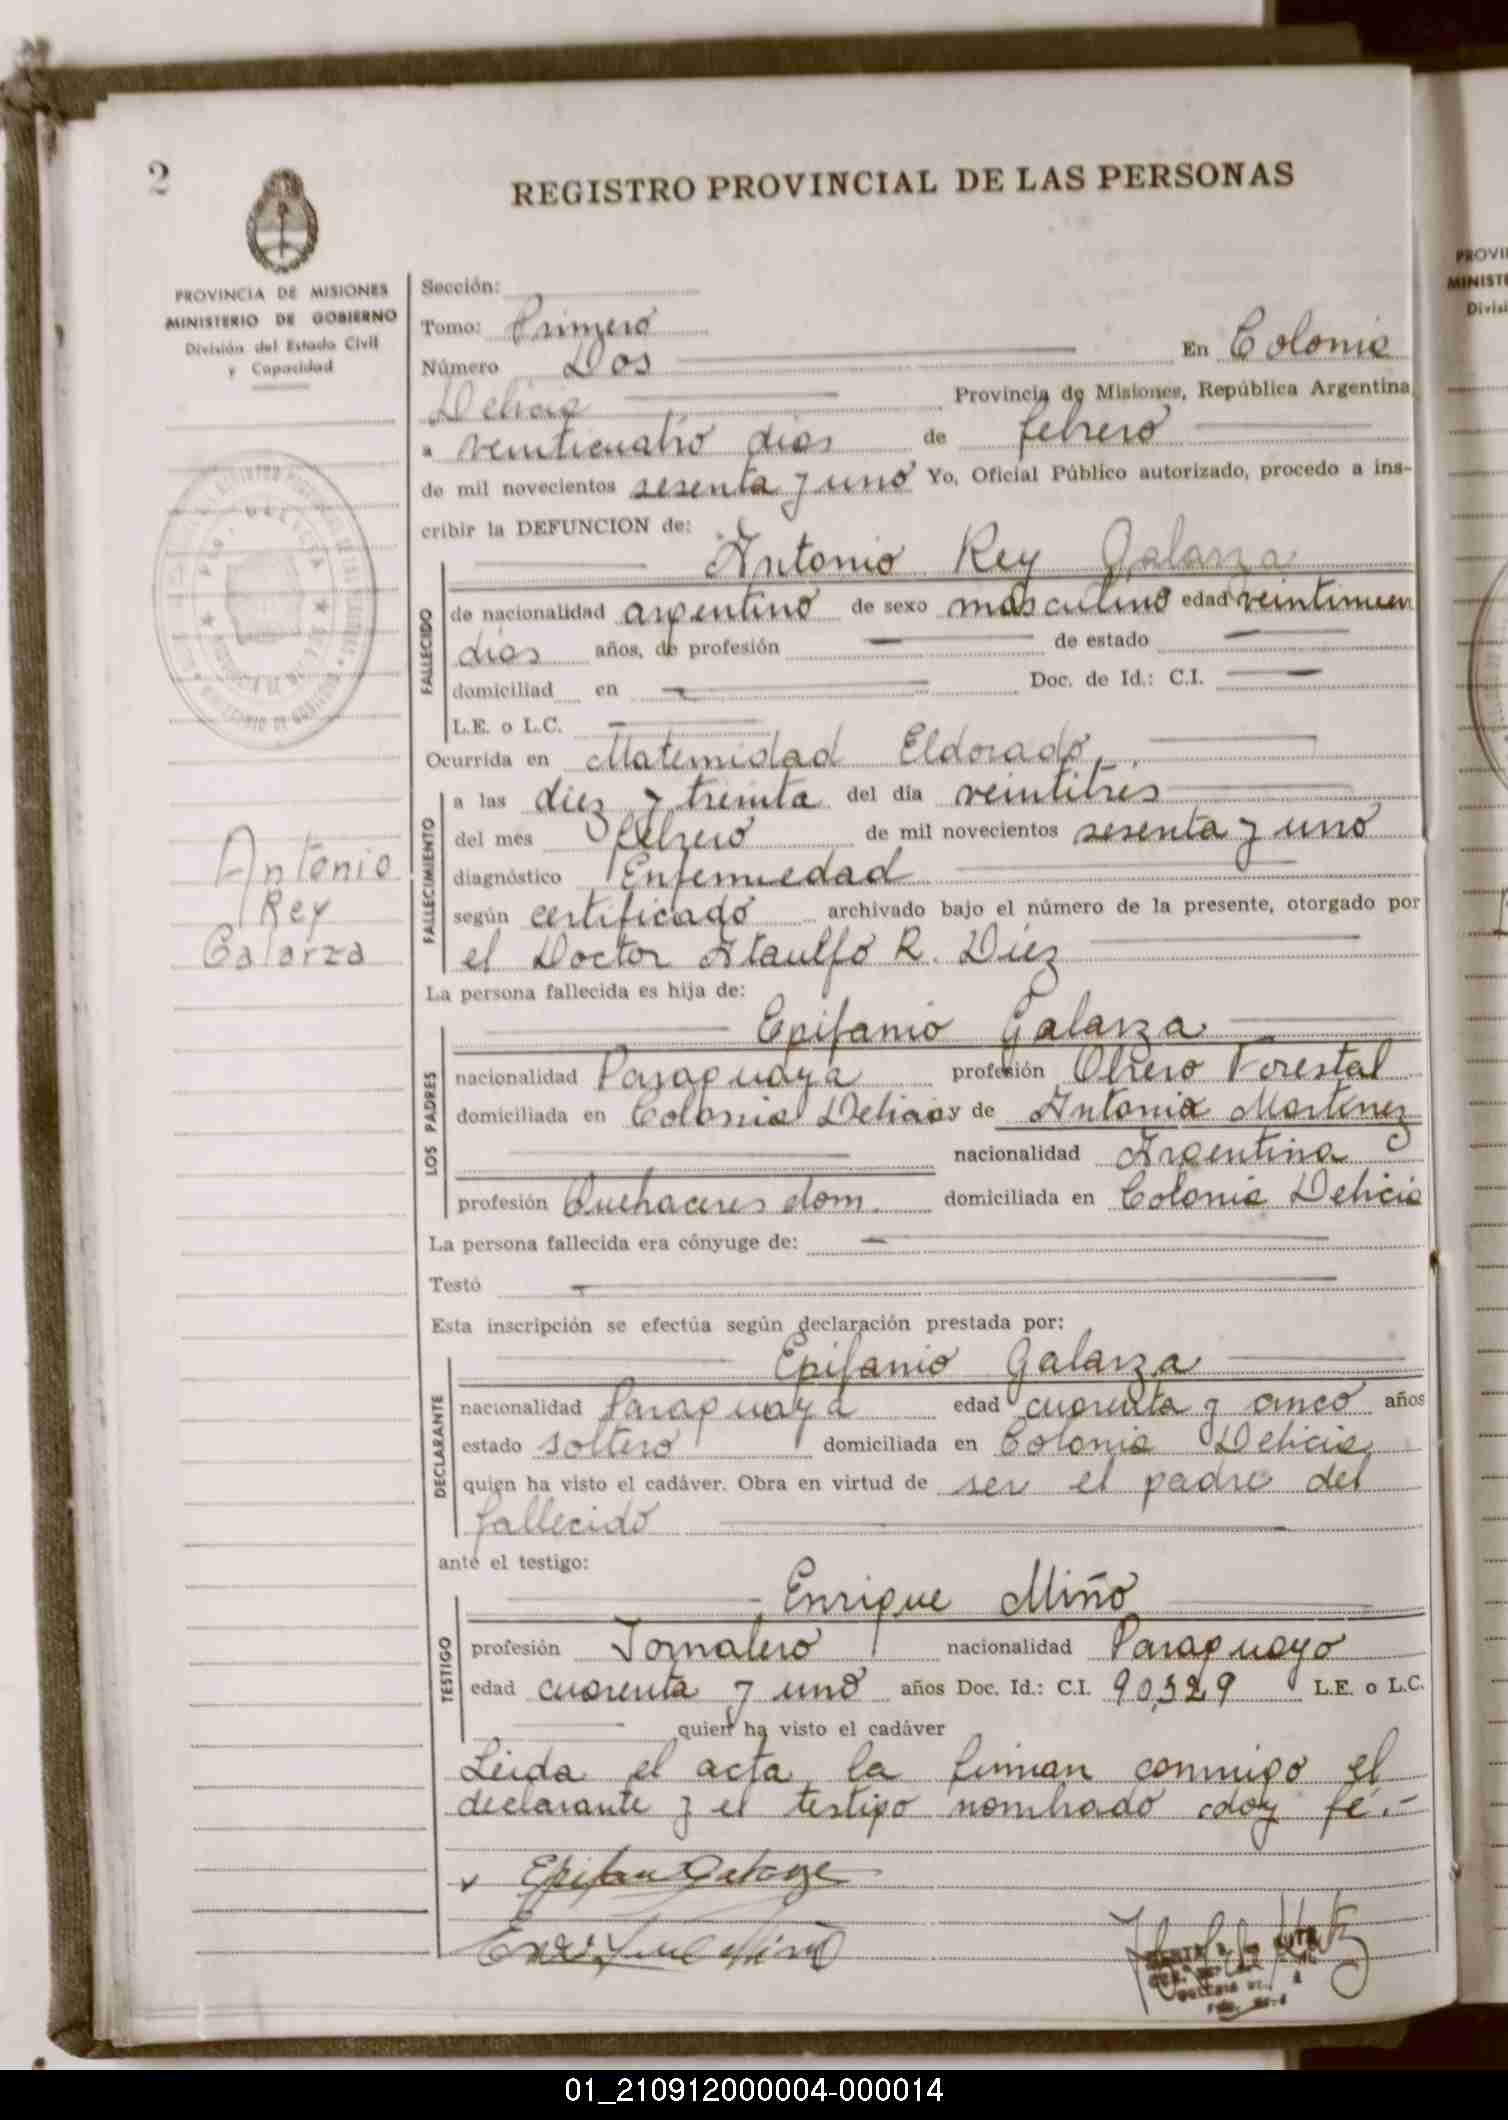 2
REGISTRO PROVINCIAL DE LAS PERSONAS
PROVINCIA DE MISIONES
MINISTERIO DE GOBIERNO
División del Estado Civil
y Capacidad
Sección:
Tomo: Primero
Número Dos En Colonia
Delicia Provincia de Misiones, República Argentina,
a veinticuatro dias de febrero
de mil novecientos sesenta y uno Yo, Oficial Público autorizado, procedo a ins-
cribir la DEFUNCION de:
Antonio Rey Galarza
FALLECIDO
de nacionalidad argentino de sexo masculino edad veintinueve
dias años, de profesión de estado
domiciliad en Doc. de Id.: C.I.
L.E. o L.C.
Ocurrida en Maternidad Eldorado
FALLECIMIENTO
a las diez y treinta del día veintitres
del mes febrero de mil novecientos sesenta y uno
diagnóstico Enfermedad
según certificado archivado bajo el número de la presente, otorgado por
el Doctor Ataulfo R. Diez
Antonio
Rey
Galarza
La persona fallecida es hija de:
Epifanio Galarza
LOS PADRES
nacionalidad Paraguaya profesión Obrero Forestal
domiciliada en Colonia Delicia y de Antonia Martinez
nacionalidad Argentina
profesión Quehaceres dom. domiciliada en Colonia Delicia
La persona fallecida era cónyuge de:
Testó
Esta inscripción se efectúa según declaración prestada por:
Epifanio Galarza
DECLARANTE
nacionalidad Paraguaya edad cuarenta y cinco años
estado soltero domiciliada en Colonia Delicia
quien ha visto el cadáver. Obra en virtud de ser el padre del
fallecido
ante el testigo:
Enrique Miño
TESTIGO
profesión Jornalero nacionalidad Paraguayo
edad cuarenta y uno años Doc. Id.: C.I. 90.329 L.E. o L.C.
quien ha visto el cadáver
Leida el acta la firman conmigo el
declarante y el testigo nombrado doy fé.-
Enrique Miño
PROVI
MINISTE
Divisi
01_210912000004-000014